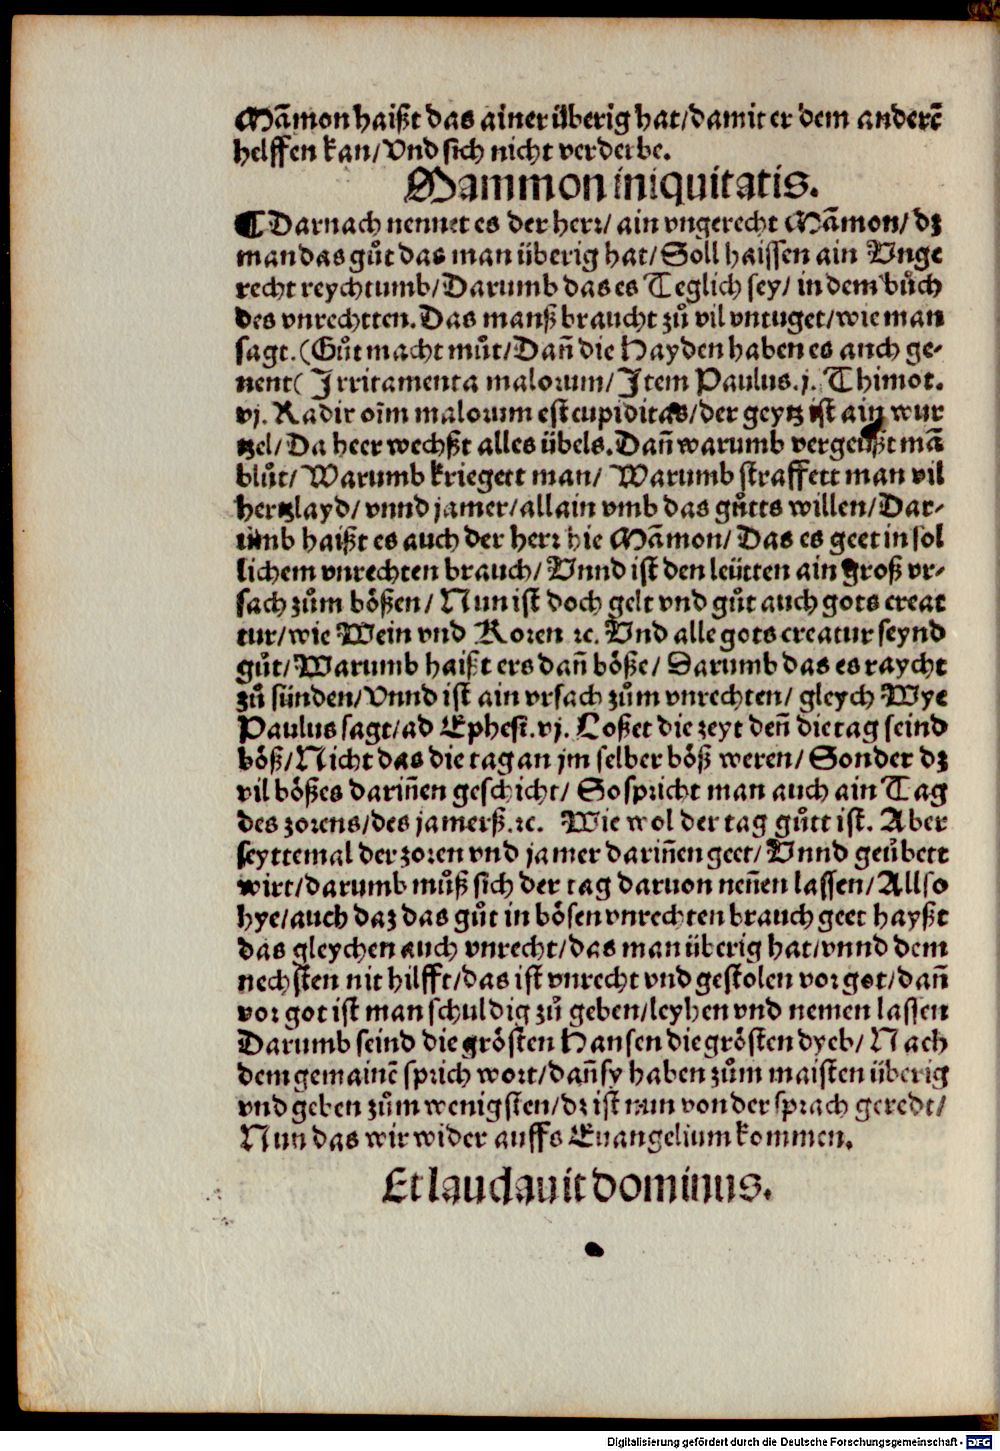 Mãmon haißt das ainer überig hat/damit er dem anderẽ
helffen kan/Vnd sich nicht verderbe.
Mammon iniquitatis.
¶Darnach nennet es der herꝛ/ ain vngerecht Mãmon/ dꝫ
man das gůt das man überig hat/ Soll haissen ain Vnge
recht reychtumb/Darumb das es Teglich sey/ in dem bůch
des vnrechtten. Das manß braucht zů vil vntuget/wie man
sagt. (Gůt macht můt/Dañ die Hayden haben es auch ge-
nent( Jrritamenta maloꝛum/Jtem Paulus. j. Thimot.
vj. Radir oĩm maloꝛum est cupiditas/der geytz ist ain wur
tzel/Da heer wechßt alles übels. Dañ warumb vergeußt mã
blůt/ Warumb kriegett man/ Warumb straffett man vil
hertzlayd/ vnnd jamer/allain vmb das gůtts willen/Dar-
umb haißt es auch der herꝛ hie Mãmon/ Das es geet in sol
lichem vnrechten brauch/ Vnnd ist den leütten ain groß vr-
sach zům bößen/ Nun ist doch gelt vnd gůt auch gots creat
tur/wie Wein vnd Koꝛen ꝛc. Vnd alle gots creatur seynd
gůt/Warumb haißt ers dañ böße/ Darumb das es raycht
zů sünden/Vnnd ist ain vrsach zům vnrechten/ gleych Wye
Paulus sagt/ad Ephesi. vj. Loßet die zeyt deñ die tag seind
böß/Nicht das die tag an jm selber böß weren/ Sonder dꝫ
vil bößes dariñen geschicht/ So spꝛicht man auch ain Tag
des zoꝛens/des jamerß.ꝛc. Wie wol der tag gůtt ist. Aber
seyttemal der zoꝛen vnd jamer dariñen geet/Vnnd geůbett
wirt/darumb můß sich der tag daruon neñen lassen/Allso
hye/auch daz das gůt in bösen vnrechten brauch geet hayßt
das gleychen auch vnrecht/das man überig hat/vnnd dem
nechsten nit hilfft/das ist vnrecht vnd gestolen voꝛ got/dañ
voꝛ got ist man schuldig zů geben/leyhen vnd nemen lassen
Darumb seind die grösten Hansen die grösten dyeb/ Nach
dem gemainẽ sprich woꝛt/dañ sy haben zům maisten überig
vnd geben zům wenigsten/dꝫ ist nun von der spꝛach geredt/
Nun das wir wider auffs Euangelium kommen.
Et laudauit dominus.
Digitalisierung gefördert durch die Deutsche Forschungsgemeinschaft - DFG